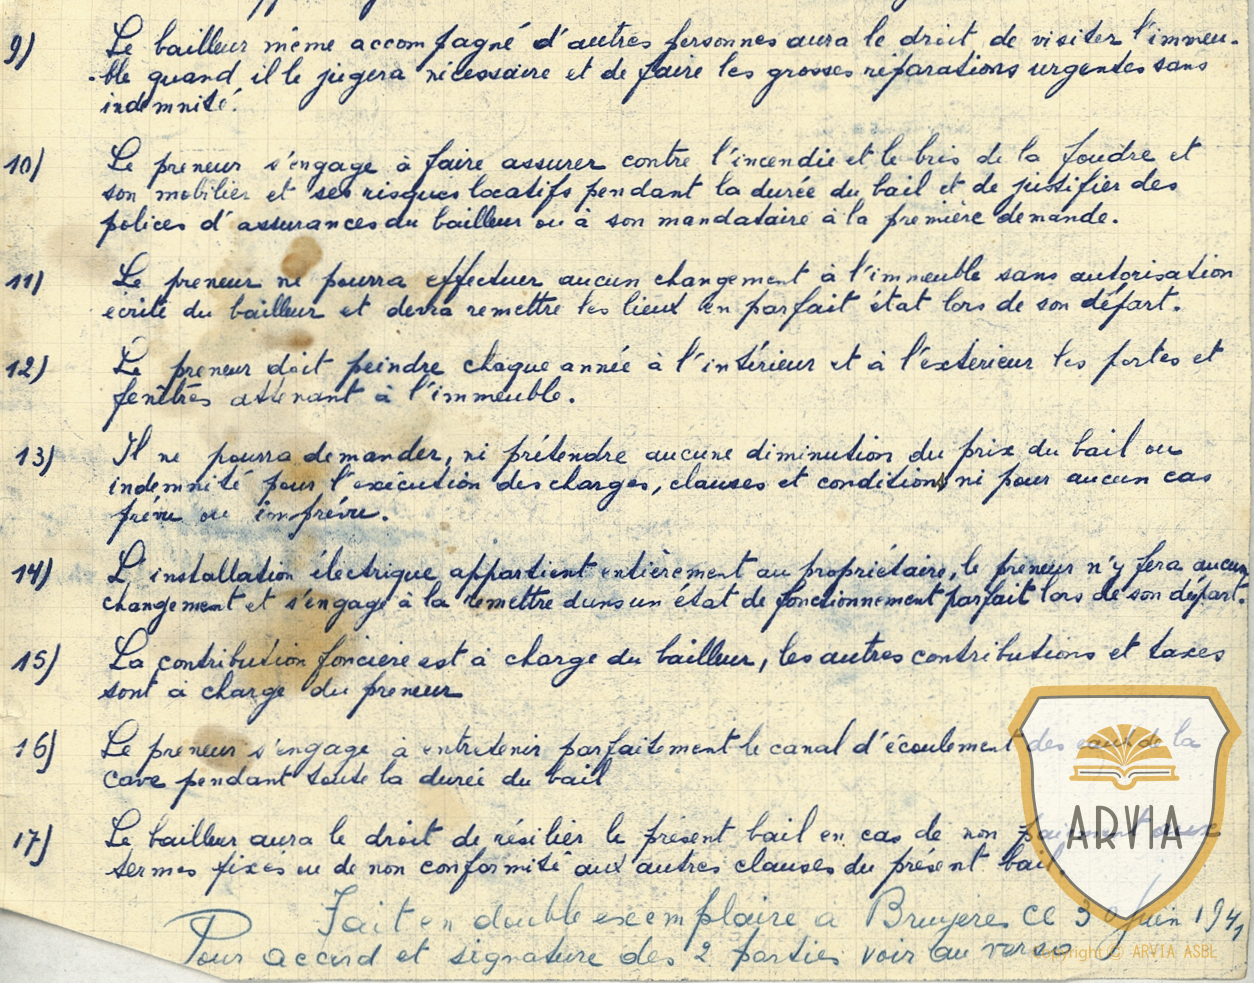 9) Le bailleur même accompagné d'autres personnes aura le droit de visiter l'immeu-
-ble quand il le jugera nécessaire et de faire les grosses réparations urgentes sans
indemnité.
10) Le preneur s'engage à faire assurer contre l'incendie et le bris de la foudre et
son mobilier et ses risques locatifs pendant la durée du bail et de justifier des
polices d'assurances du bailleur ou à son mandataire à la première demande.
11) Le preneur ne pourra effectuer aucun changement à l'immeuble sans autorisation
écrite du bailleur et devra remettre les lieux en parfait état lors de son départ.
12) Le preneur doit peindre chaque année à l'intérieur et à l'extérieur les portes et
fenêtres attenant à l'immeuble.
13) Il ne pourra demander, ni prétendre aucune diminution du prix du bail ou
indemnité pour l'exécution des charges, clauses et conditions ni pour aucun cas
prévu ou imprévu.
14) L'installation électrique appartient entièrement au propriétaire, le preneur n'y fera aucun
changement et s'engage à la remettre dans un état de fonctionnement parfait lors de son départ.
15) La contribution foncière est à charge du bailleur, les autres contributions et taxes
sont à charge du preneur
16) Le preneur s'engage à entretenir parfaitement le canal d'écoulement des eaux de la
cave pendant toute la durée du bail
17) Le bailleur aura le droit de résilier le présent bail en cas de non paiement aux
termes fixés ou de non conformité aux autres clauses du présent bail.
Fait en double exemplaire a Bruyeres ce 30 Juin 1941
Pour accord et signature des 2 parties voir au verso
ARVIA
Copyright © ARVIA ASBL